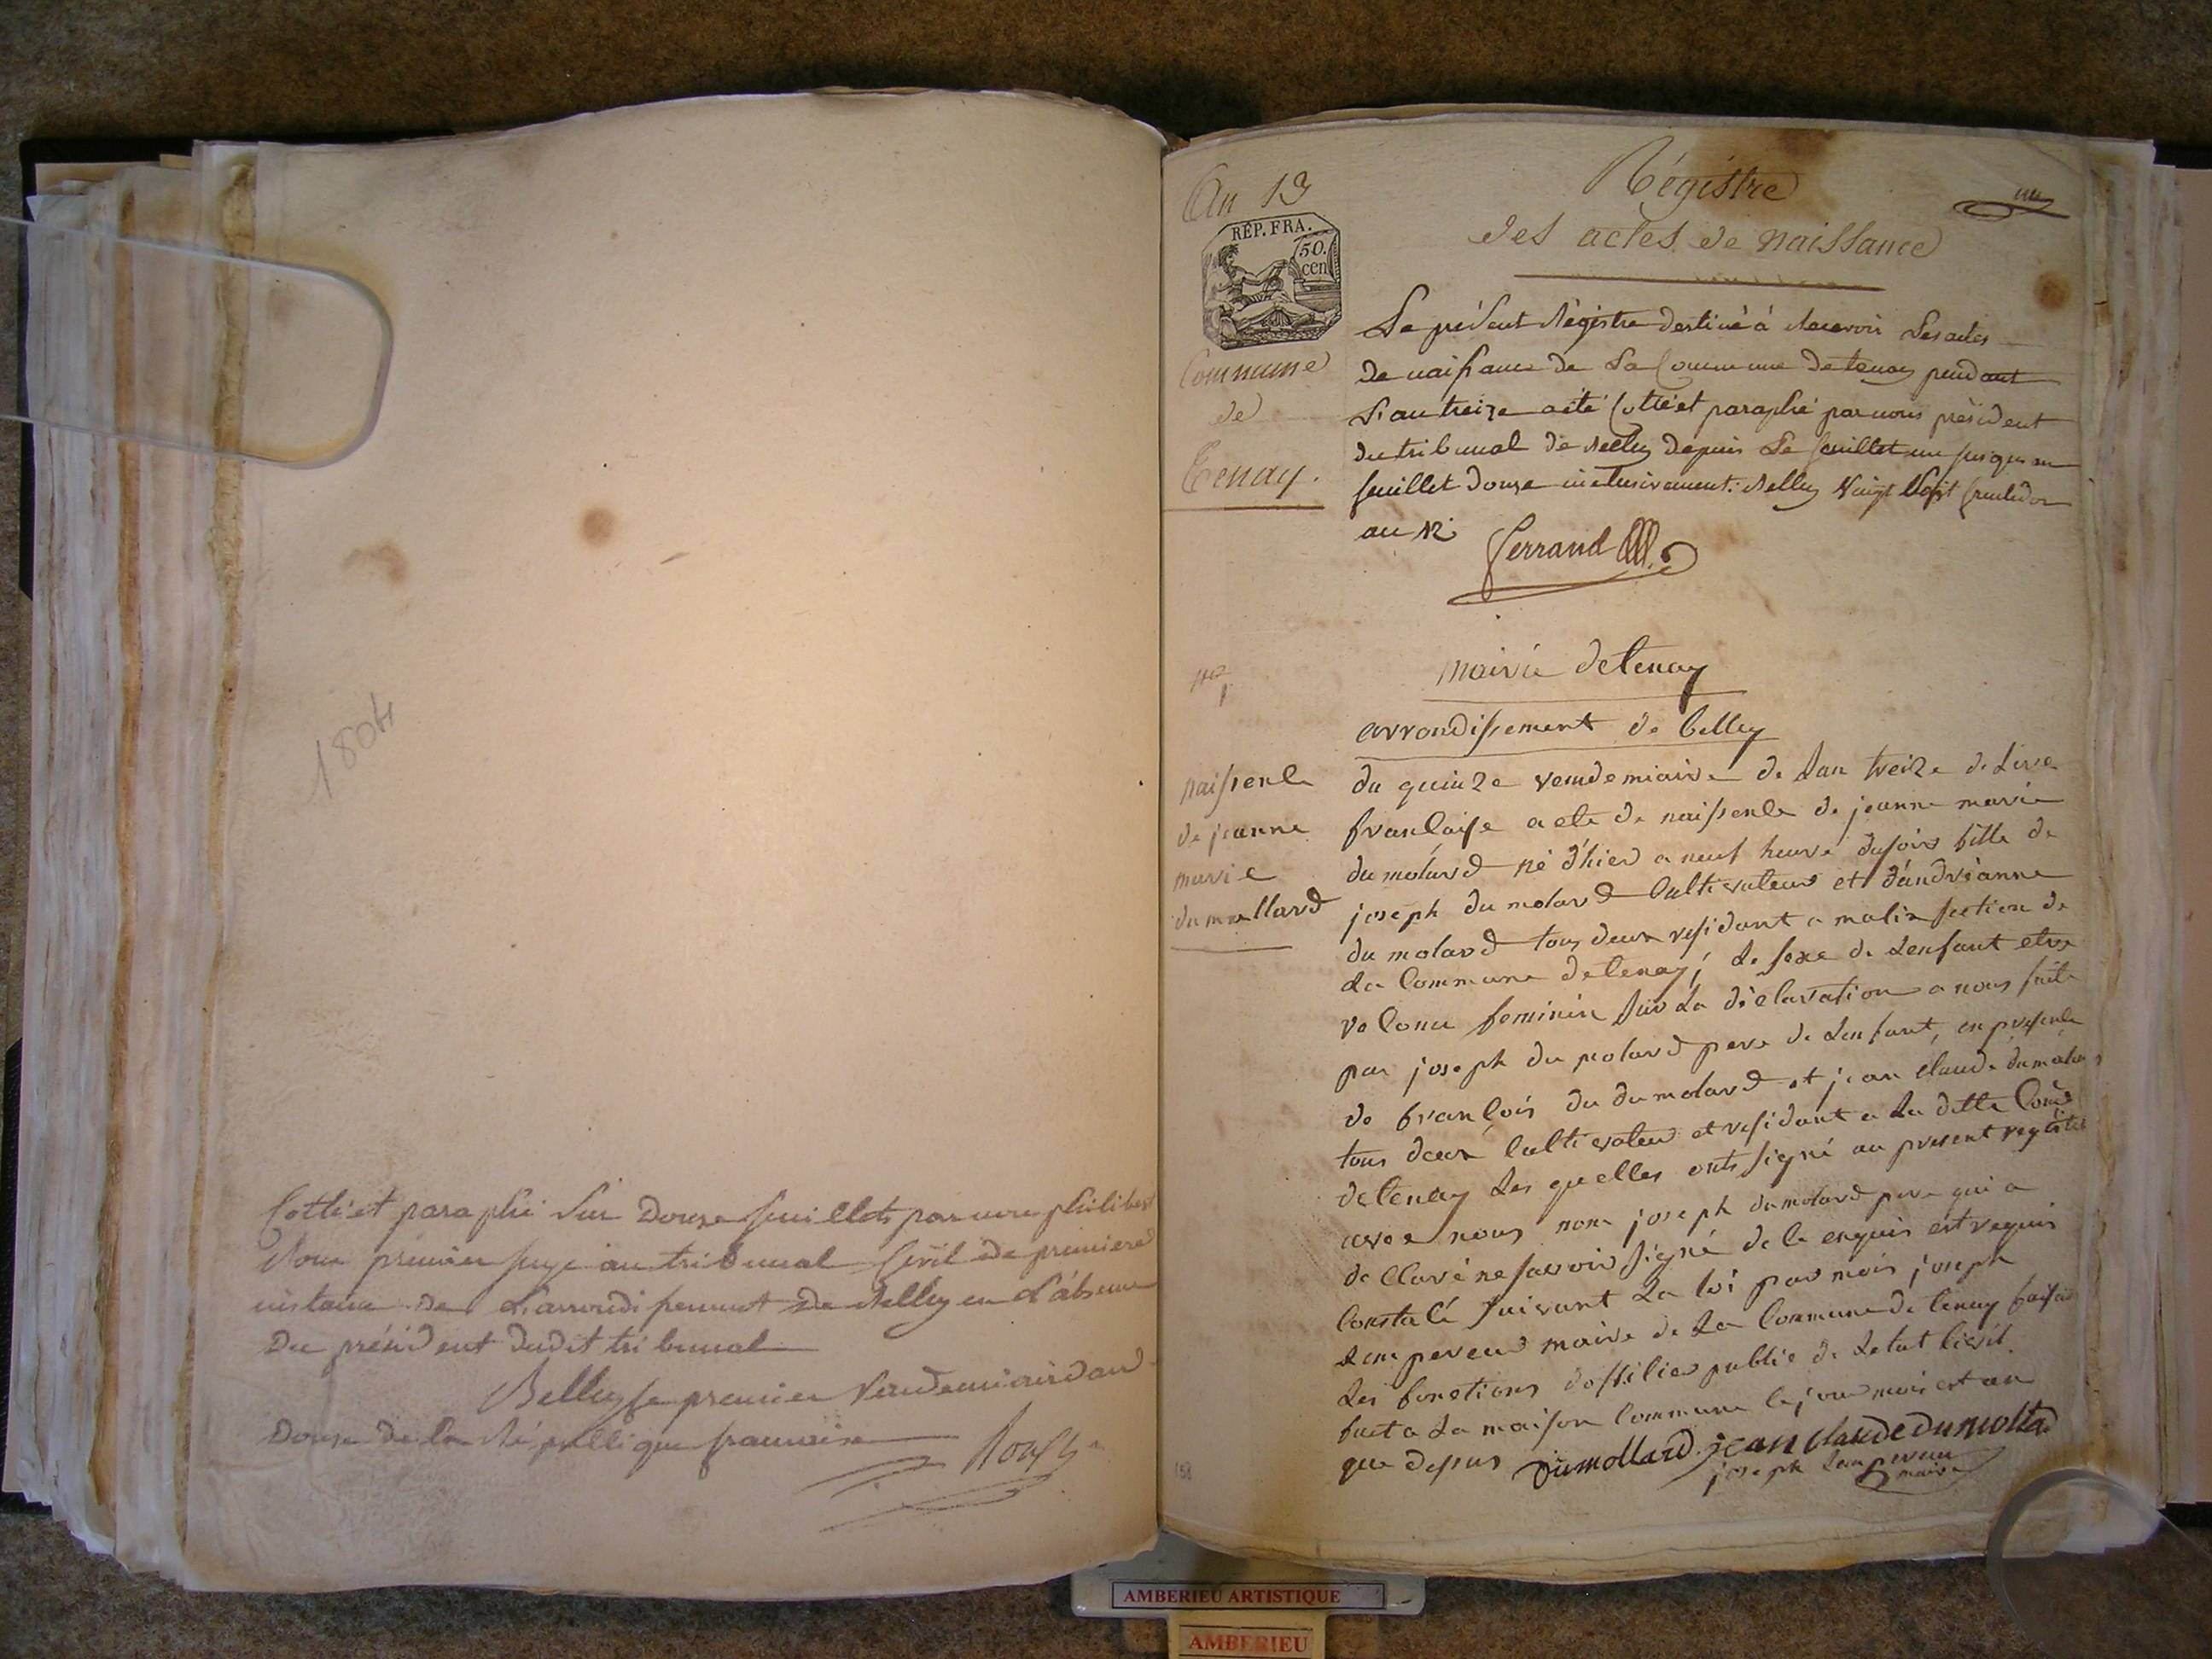 1804
Cotté et paraphé sur douze feuillets par nous philibert
Roux premier juge au tribunal Civil de premiere
instance de L'arrondissement de Belley en L'absence
du président dudit tribunal
Belley le premier Vendemiaire an
Douze de la République francaise
An 13
REP. FRA.
50.
cen
Commune
de
Tenay.
Régistre
des actes de naissance
Le présent Régistre destiné à Recevoir Les actes
de naissance de La Commune de tenay pendant
L'an treize a été Cotté et paraphé par nous président
du tribunal de Belley depuis Le feuillet un jusqu'au
feuillet douze inclusivement. Belley Vingt Sept fructidor
an 12
Ferrand
mairie de tenay
arrondissement de belley
n°
1
naissenle
de jeanne
marie
dumollard
du quinze vendemiaire de lan treize de Lere
franlaise acte de naissenle de jeanne marie
du molard né d'hier a neuf heure du soir fille de
joseph du molard Cultivateur et d'andréanne
du molard tous deux residant a malix section de
La Commune de tenay, Le sexe de Lenfant etre
reConu feminin sur La déClaration a nous faite
par joseph du molard pere de Lenfant, en presenle
de françois du dumolard et jean Claude dumolard
tous deux Cultivateur et residant a La ditte Come
de tenay Les quelles onts signé au present registre
avec nous non joseph dumolard pere qui a
deClaré ne savoir signé de le enquis est requis
Constaté suivant La loi par mois joseph
Lempereur maire de La Commune de tenay faisant
Les fonctions dofficier public de Letat Civil.
fait a La maison Commune le jour mois est an
que dessus Dumollard jean claude dumollard
joseph Lempereur
maire
158
AMBERIEU ARTISTIQUE
AMBERIEU